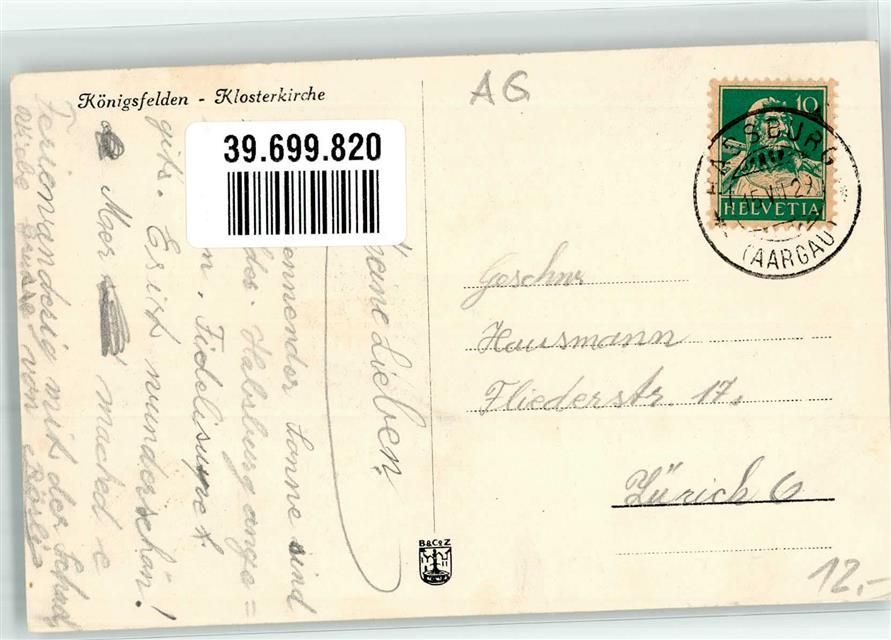 Königsfelden - Klosterkirche
39.699.820
AG
10
HELVETIA
HABSBURG
VII.29
(AARGAU)
Geschw.
Hausmann
Fliederstr. 17.
Zürich 6
B&Co Z
12,-
Meine Lieben,
brennender Sonne sind
des Habsburg ange=
Fidelisuppe &
gits. Es ist wunderschön!
Maer mached e
Ferienwanderig mit der Schuel
Liebe Grüsse von Rösli